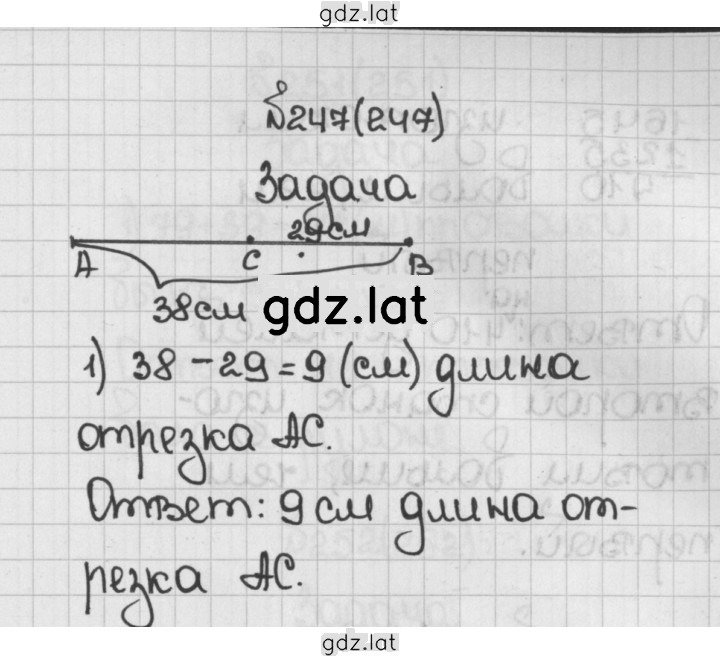 gdz.lat
№247(247)
Задача
29см
A C B
38см
gdz.lat
1) 38-29=9 (см) длина
отрезка AC.
Ответ: 9 см длина от-
резка AC.
gdz.lat